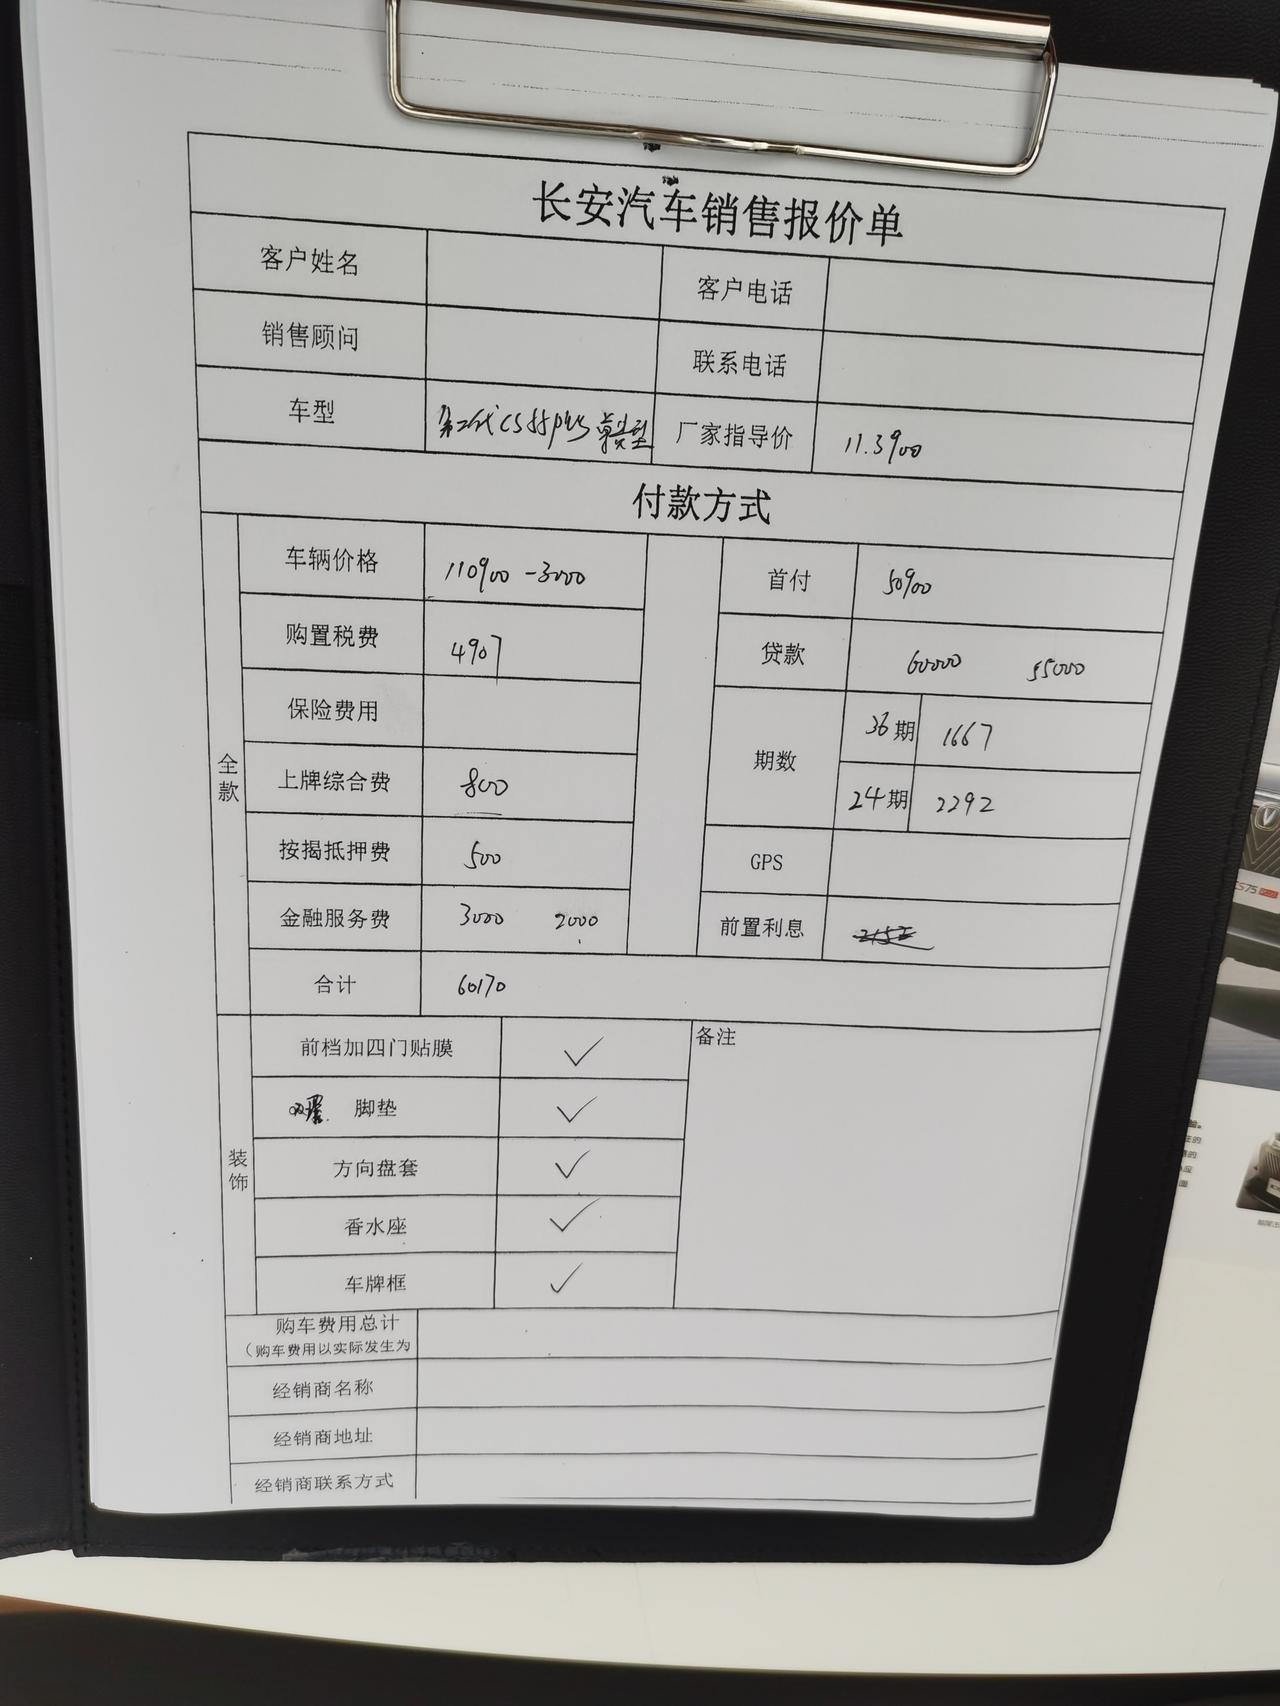 长安汽车销售报价单
客户姓名 客户电话
销售顾问 联系电话
车型 第二代CS55PLUS 尊贵型 厂家指导价 11.3900
付款方式
全款
车辆价格 110900 -3000 首付 50900
购置税费 4907 贷款 60000 55000
保险费用 期数 36期 1667
上牌综合费 800 24期 2292
按揭抵押费 500 GPS
金融服务费 3000 2000 前置利息
合计 60170
装饰
前档加四门贴膜 ✓ 备注
脚垫 ✓
方向盘套 ✓
香水座 ✓
车牌框 ✓
购车费用总计
（购车费用以实际发生为
经销商名称
经销商地址
经销商联系方式